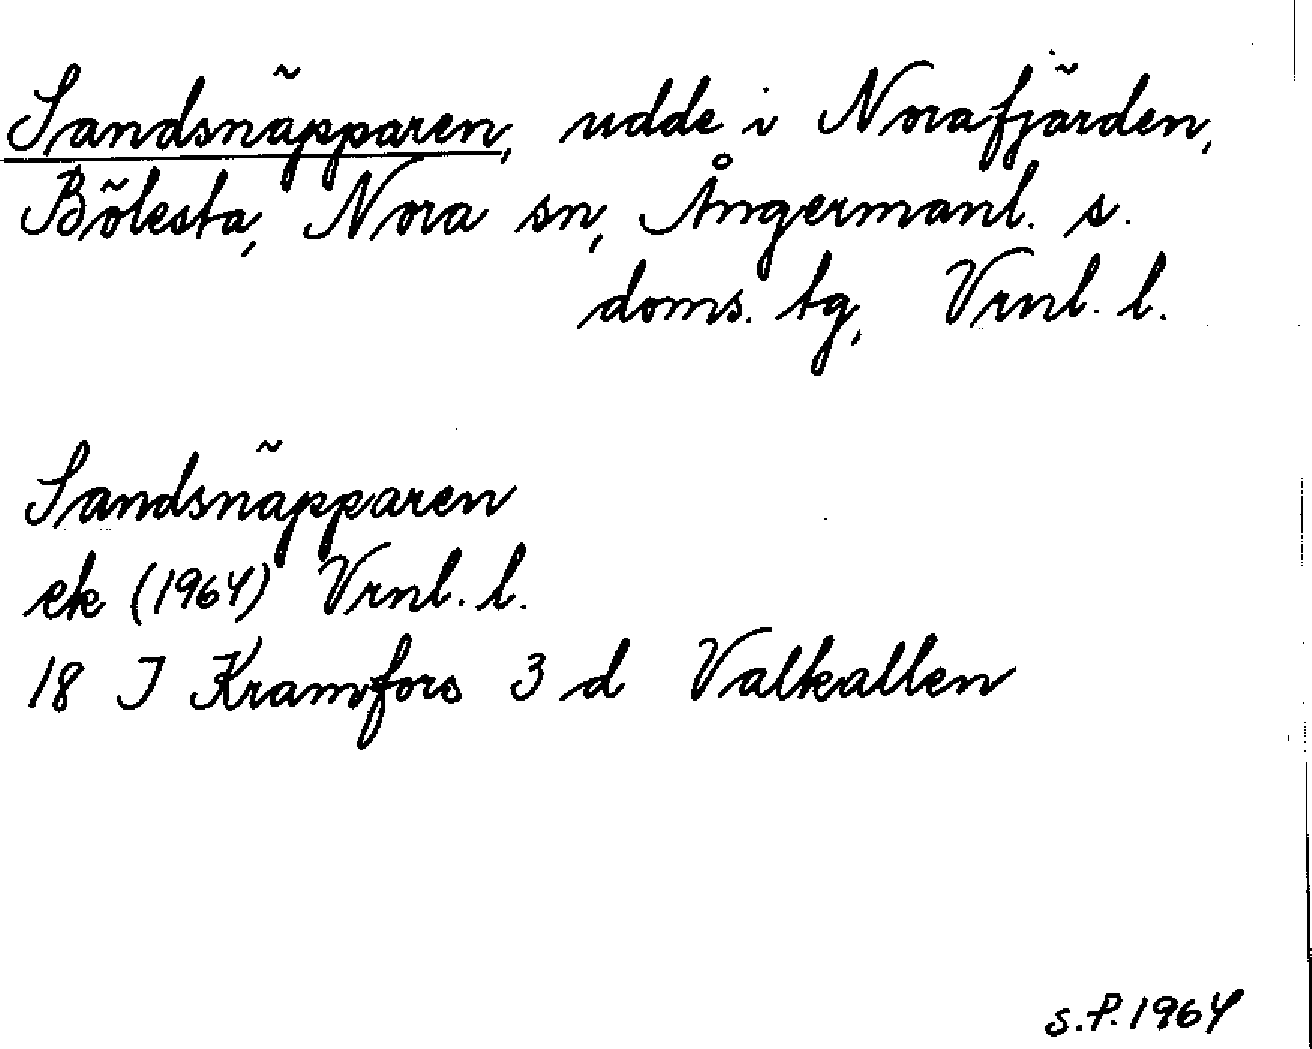 Sandsnäpparen, udde i Norafjärden,
Bölesta, Nora sn, Ångermanl. s.
doms. tg, Vrnl. l.
Sandsnäpparen
ek (1964) Vrnl. l.
18 I Kramfors 3 d Valkallen
S.P. 1964